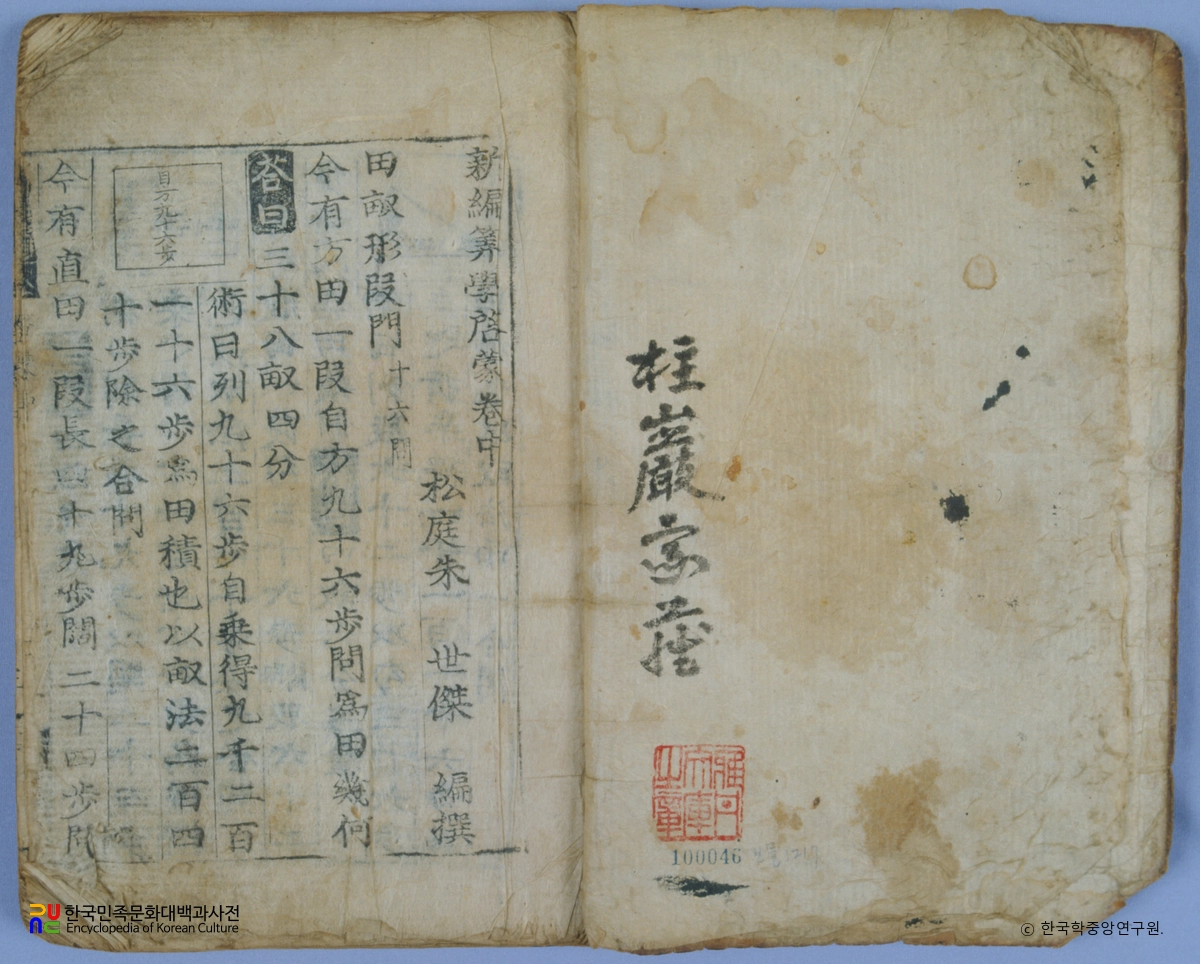 柱巖家藏
100046
新編筭學啓蒙卷中
松庭朱 世傑 編撰
田畝形段門 十六問
今有方田一段自方九十六步問爲田幾何
荅曰三十八畝四分
術曰列九十六步自乗得九千二百
一十六步爲田積也以畝法二百四
十步除之合問
自方九十六步
今有直田一段長四十九步闊二十四步問
한국민족문화대백과사전
Encyclopedia of Korean Culture
ⓒ 한국학중앙연구원.